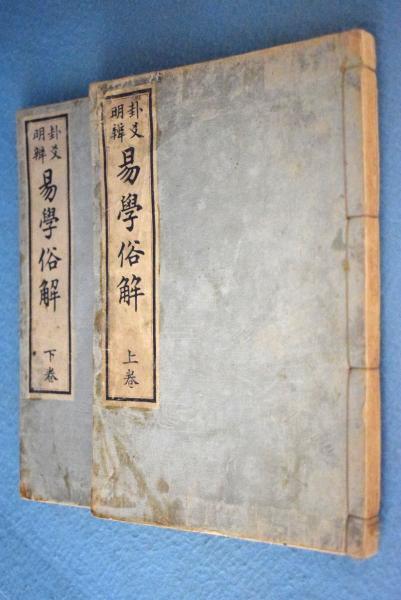 卦爻
明辨
易學俗解
上卷
卦爻
明辨
易學俗解
下卷